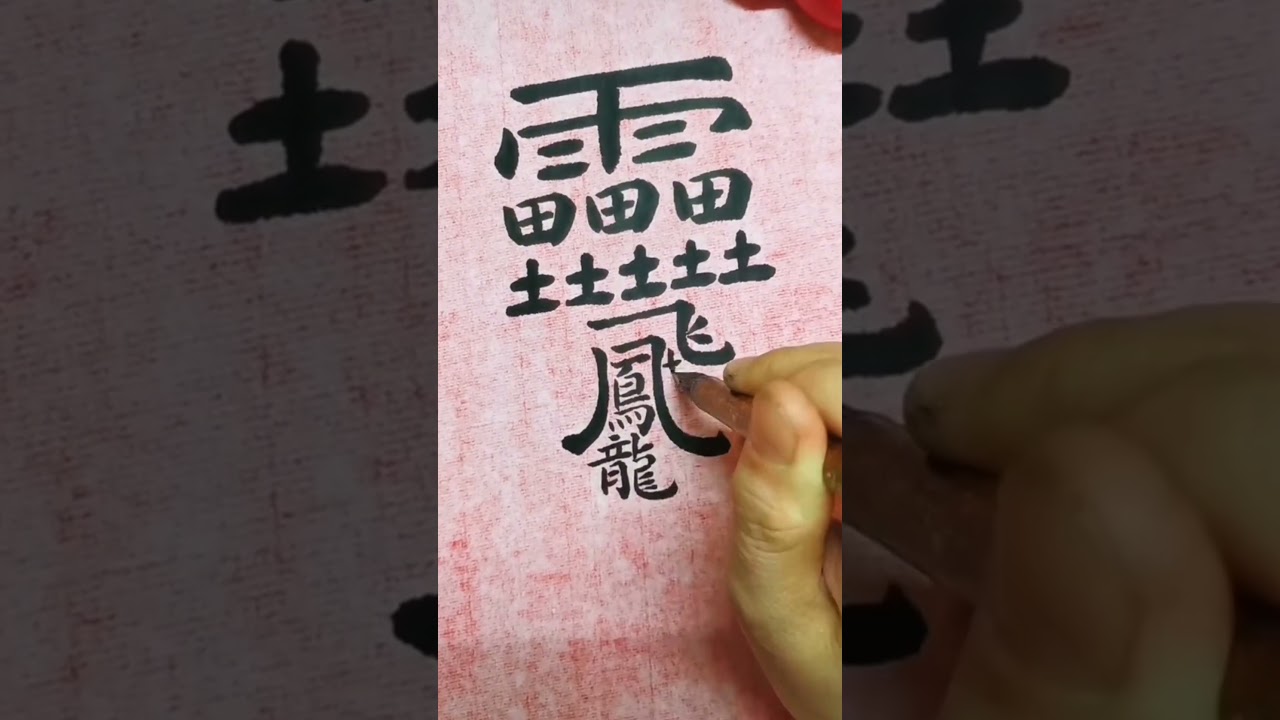 雨
田田田
土土土土土
飞
鳳
龍